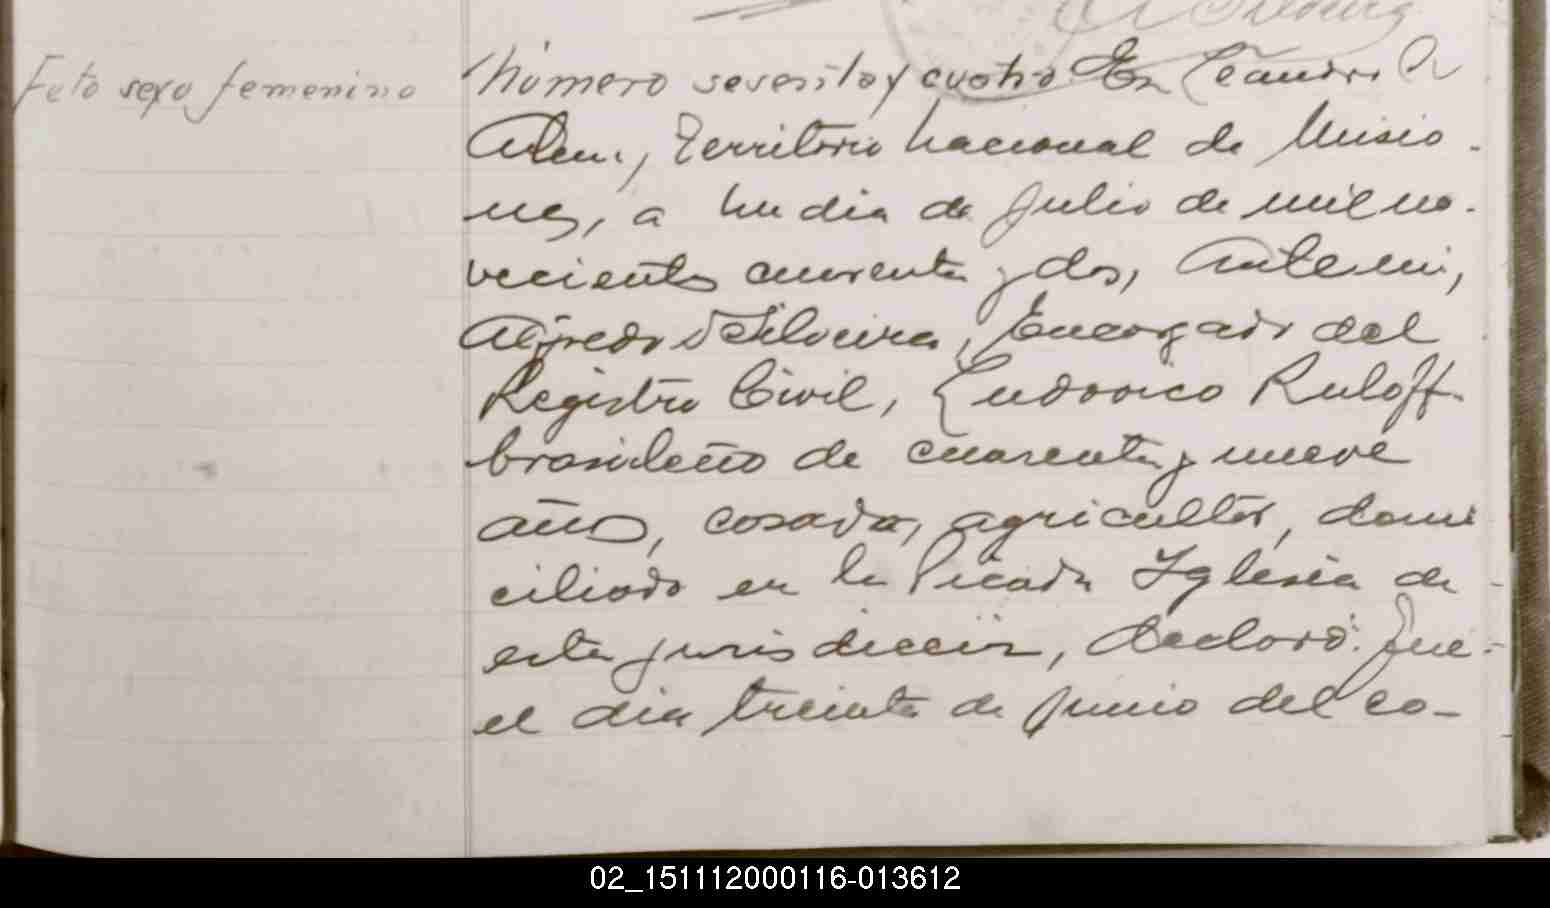 Feto sexo femenino
Número sesenta y cuatro. En Leandro N
Alem, Territorio Nacional de Misio-
nes, a un dia de Julio de mil no-
vecientos cuarenta y dos, Ante mi,
Alfredo Silveira, Encargado del
Registro Civil, Ludovico Ruloff
brasileño de cuarenta y nueve
años, casado, agricultor, domi
ciliado en la Picada Iglesia de
esta jurisdicción, declaró: Que
el dia treinta de Junio del co-
02_151112000116-013612